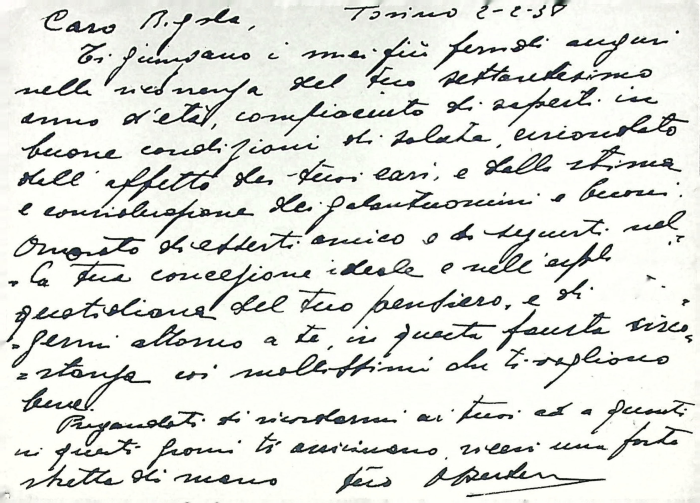 Caro Rigola, Torino 2-2-38
Ti giungano i miei più fervidi auguri
nella ricorrenza del tuo settantesimo
anno d'età, compiaciuto di saperti in
buone condizioni di salute, circondato
dall'affetto dei tuoi cari, e dalla stima
e considerazione dei galantuomini e buoni.
Onorato di esserti amico e di seguirti nel=
=la tua concezione ideale e nell'
quotidiana del tuo pensiero, e di
=germi attorno a te, in questa fausta circo=
=stanza coi moltissimi che ti vogliono
bene.
Pregandoti di ricordarmi ai tuoi ed a quanti
in questi giorni ti avvicinano, ricevi una forte
stretta di mano tuo